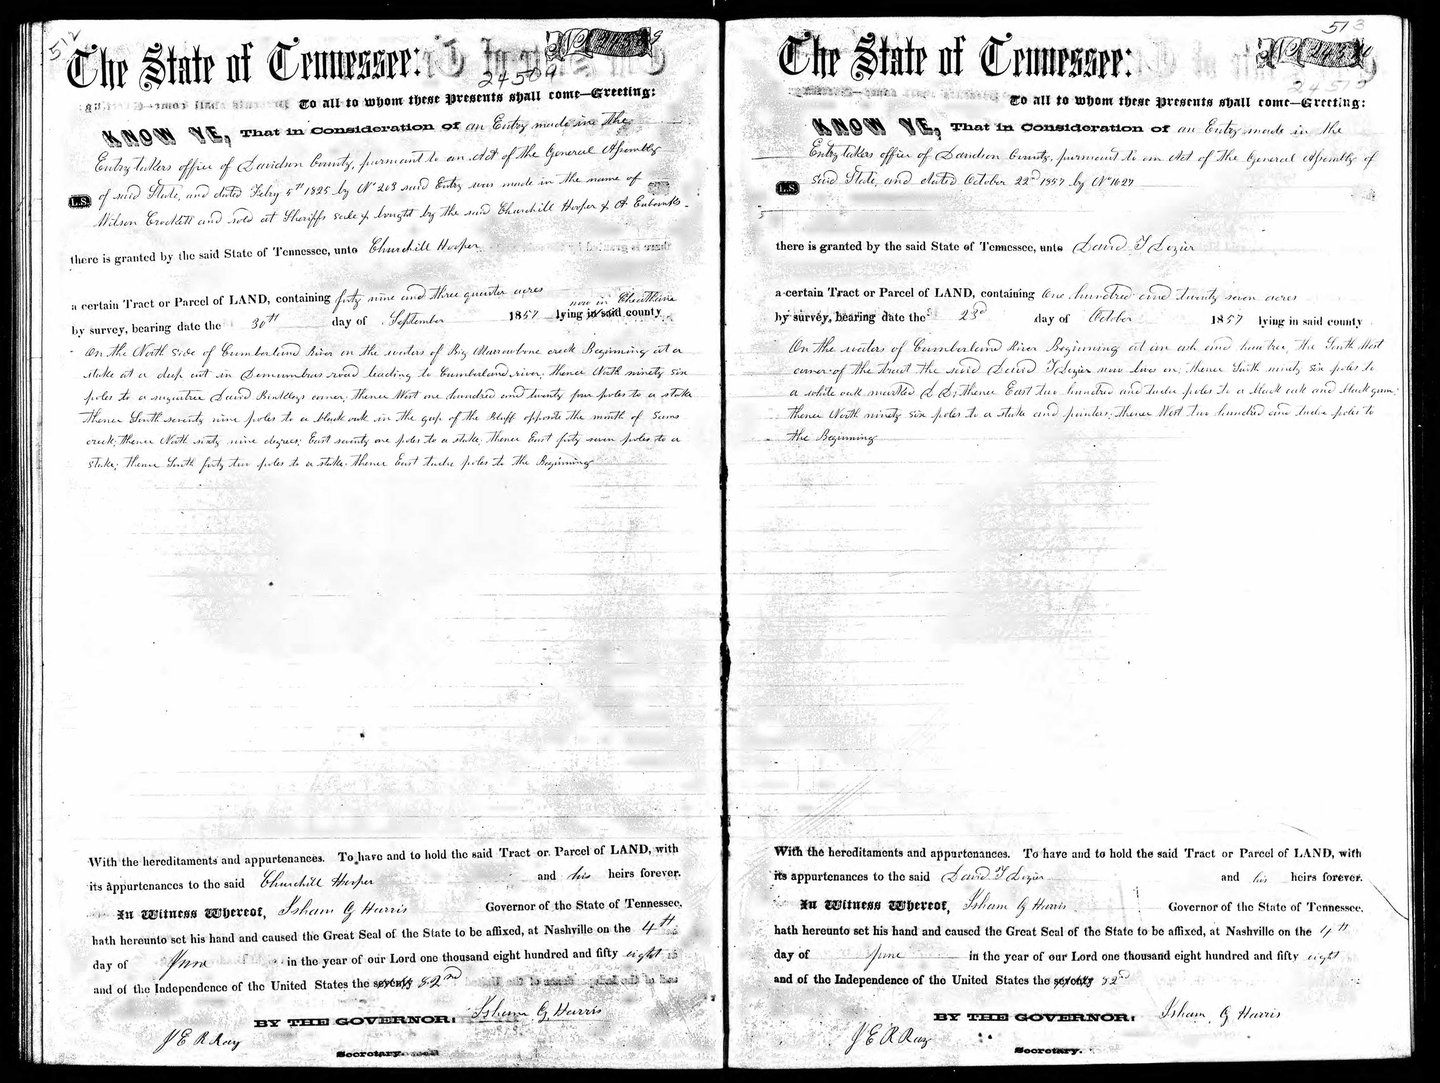 512
The State of Tennessee:
24509
To all to whom these Presents shall come—Greeting:
KNOW YE, That in Consideration of an Entry made in the
Entry takers office of Davidson County, pursuant to an Act of the General Assembly
L.S. of said State, and dated Febry 5th 1825 by No 203 said Entry was made in the name of
Wilson Crockett and sold at Sheriffs sale & bought by the said Churchill Hooper & A Eubanks
there is granted by the said State of Tennessee, unto Churchill Hooper
a certain Tract or Parcel of LAND, containing forty nine and three quarter acres
now in Cheatham
by survey, bearing date the 30th day of September 1857 lying in said county
On the North side of Cumberland River on the waters of Big Marrowbone creek Beginning at a
stake at a deep cut in Demumbras road leading to Cumberland river; thence North ninety six
poles to a sugartree David Binkleys corner; thence West one hundred and twenty four poles to a stake
thence South seventy nine poles to a black oak in the gap of the Bluff opposite the mouth of Sams
creek; thence North sixty nine degrees; East seventy one poles to a stake; thence East forty seven poles to a
stake; thence South forty two poles to a stake; thence East twelve poles to the Beginning
With the hereditaments and appurtenances. To have and to hold the said Tract or Parcel of LAND, with
its appurtenances to the said Churchill Hooper and his heirs forever.
In Witness Whereof, Isham G Harris Governor of the State of Tennessee,
hath hereunto set his hand and caused the Great Seal of the State to be affixed, at Nashville on the 4th
day of June in the year of our Lord one thousand eight hundred and fifty eight
and of the Independence of the United States the seventy 82nd
BY THE GOVERNOR: Isham G Harris
J E R Ray
Secretary.
513
The State of Tennessee:
24510
To all to whom these Presents shall come—Greeting:
KNOW YE, That in Consideration of an Entry made in the
Entry takers office of Davidson County, pursuant to an Act of the General Assembly of
L.S. said State, and dated October 22nd 1857 by No 1627
there is granted by the said State of Tennessee, unto David T Dozier
a certain Tract or Parcel of LAND, containing One hundred and twenty seven acres
by survey, bearing date the 23rd day of October 1857 lying in said county
On the waters of Cumberland River Beginning at an ash and tree, the South West
corner of the tract the said David T Dozier now lives on; thence South ninety six poles to
a white oak marked D D; thence East two hundred and twelve poles to a black oak and black gum
thence North ninety six poles to a stake and pointers; thence West two hundred and twelve poles to
the Beginning
With the hereditaments and appurtenances. To have and to hold the said Tract or Parcel of LAND, with
its appurtenances to the said David T Dozier and his heirs forever.
In Witness Whereof, Isham G Harris Governor of the State of Tennessee,
hath hereunto set his hand and caused the Great Seal of the State to be affixed, at Nashville on the 4th
day of June in the year of our Lord one thousand eight hundred and fifty eight
and of the Independence of the United States the seventy 82d
BY THE GOVERNOR: Isham G Harris
J E R Ray
Secretary.